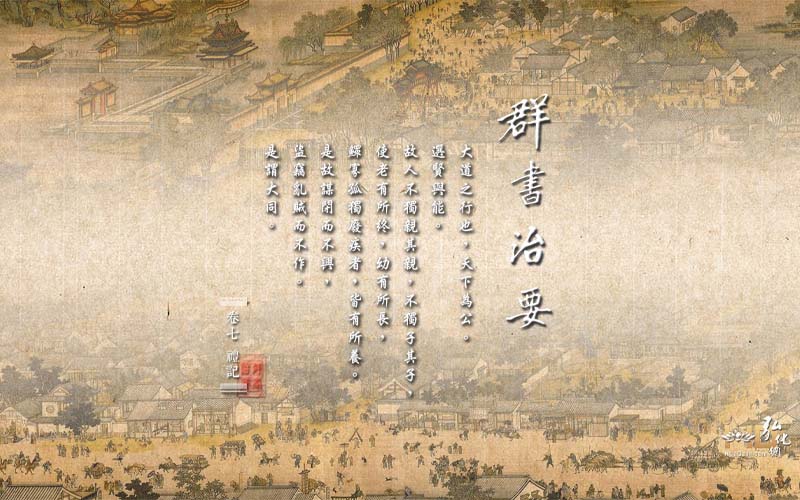 群書治要
大道之行也，天下為公。
選賢與能。
故人不獨親其親，不獨子其子，
使老有所終，幼有所長，
鰥寡孤獨廢疾者，皆有所養。
是故謀閉而不興，
盜竊亂賊而不作。
是謂大同。
卷七 禮記
弘化網